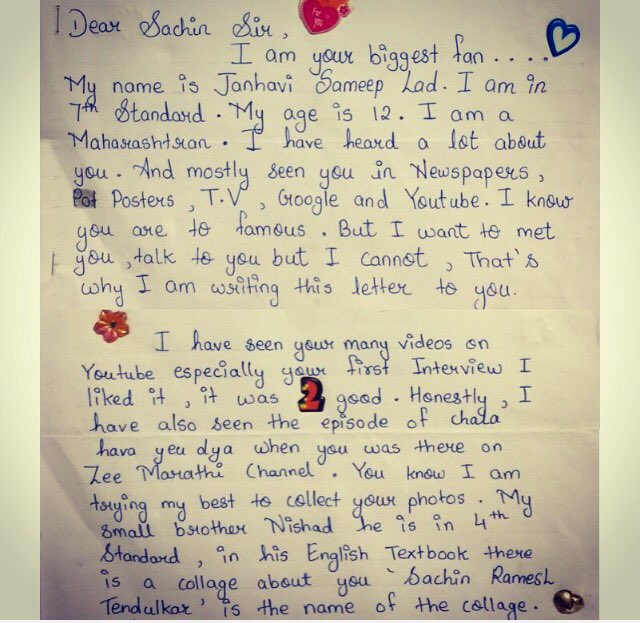 For you
Dear Sachin Sir,
I am your biggest fan....
My name is Janhavi Sameep Lad. I am in
7th Standard. My age is 12. I am a
Maharashtrian. I have heard a lot about
you. And mostly seen you in Newspapers,
Posters, T.V, Google and Youtube. I know
you are to famous. But I want to met
you, talk to you but I cannot, That's
why I am writing this letter to you.
I have seen your many videos on
Youtube especially your first Interview I
liked it, it was 2 good. Honestly, I
have also seen the episode of chala
hava yeu dya when you was there on
Zee Marathi Channel. You know I am
trying my best to collect your photos. My
small brother Nishad he is in 4th
Standard, in his English Textbook there
is a collage about you 'Sachin Ramesh
Tendulkar' is the name of the collage.